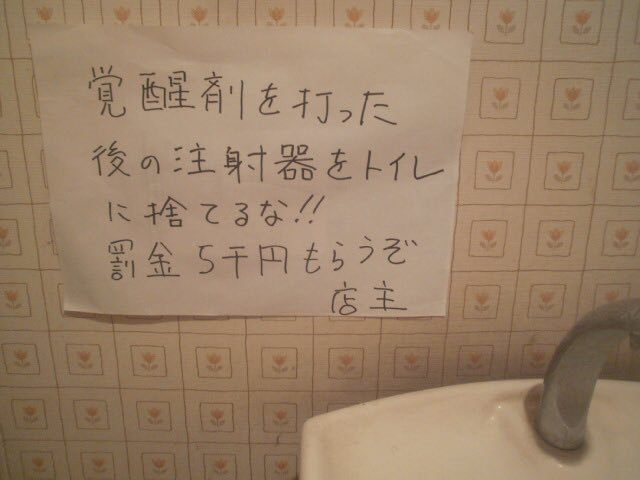 覚醒剤を打った
後の注射器をトイレ
に捨てるな!!
罰金5千円もらうぞ
店主